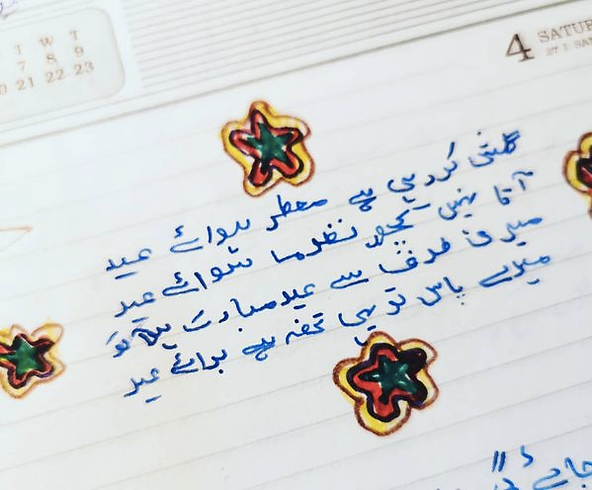 T W T
7 8 9
20 21 22 23
4 SATU
27.1 SA
گلشن کر رہی ہے معطر ہوائے عید
آتا نہیں کچھ نظر ما سوائے عید
میری طرف سے عید مبارک ہو
میرے پاس تو یہی تحفہ ہے برائے عید